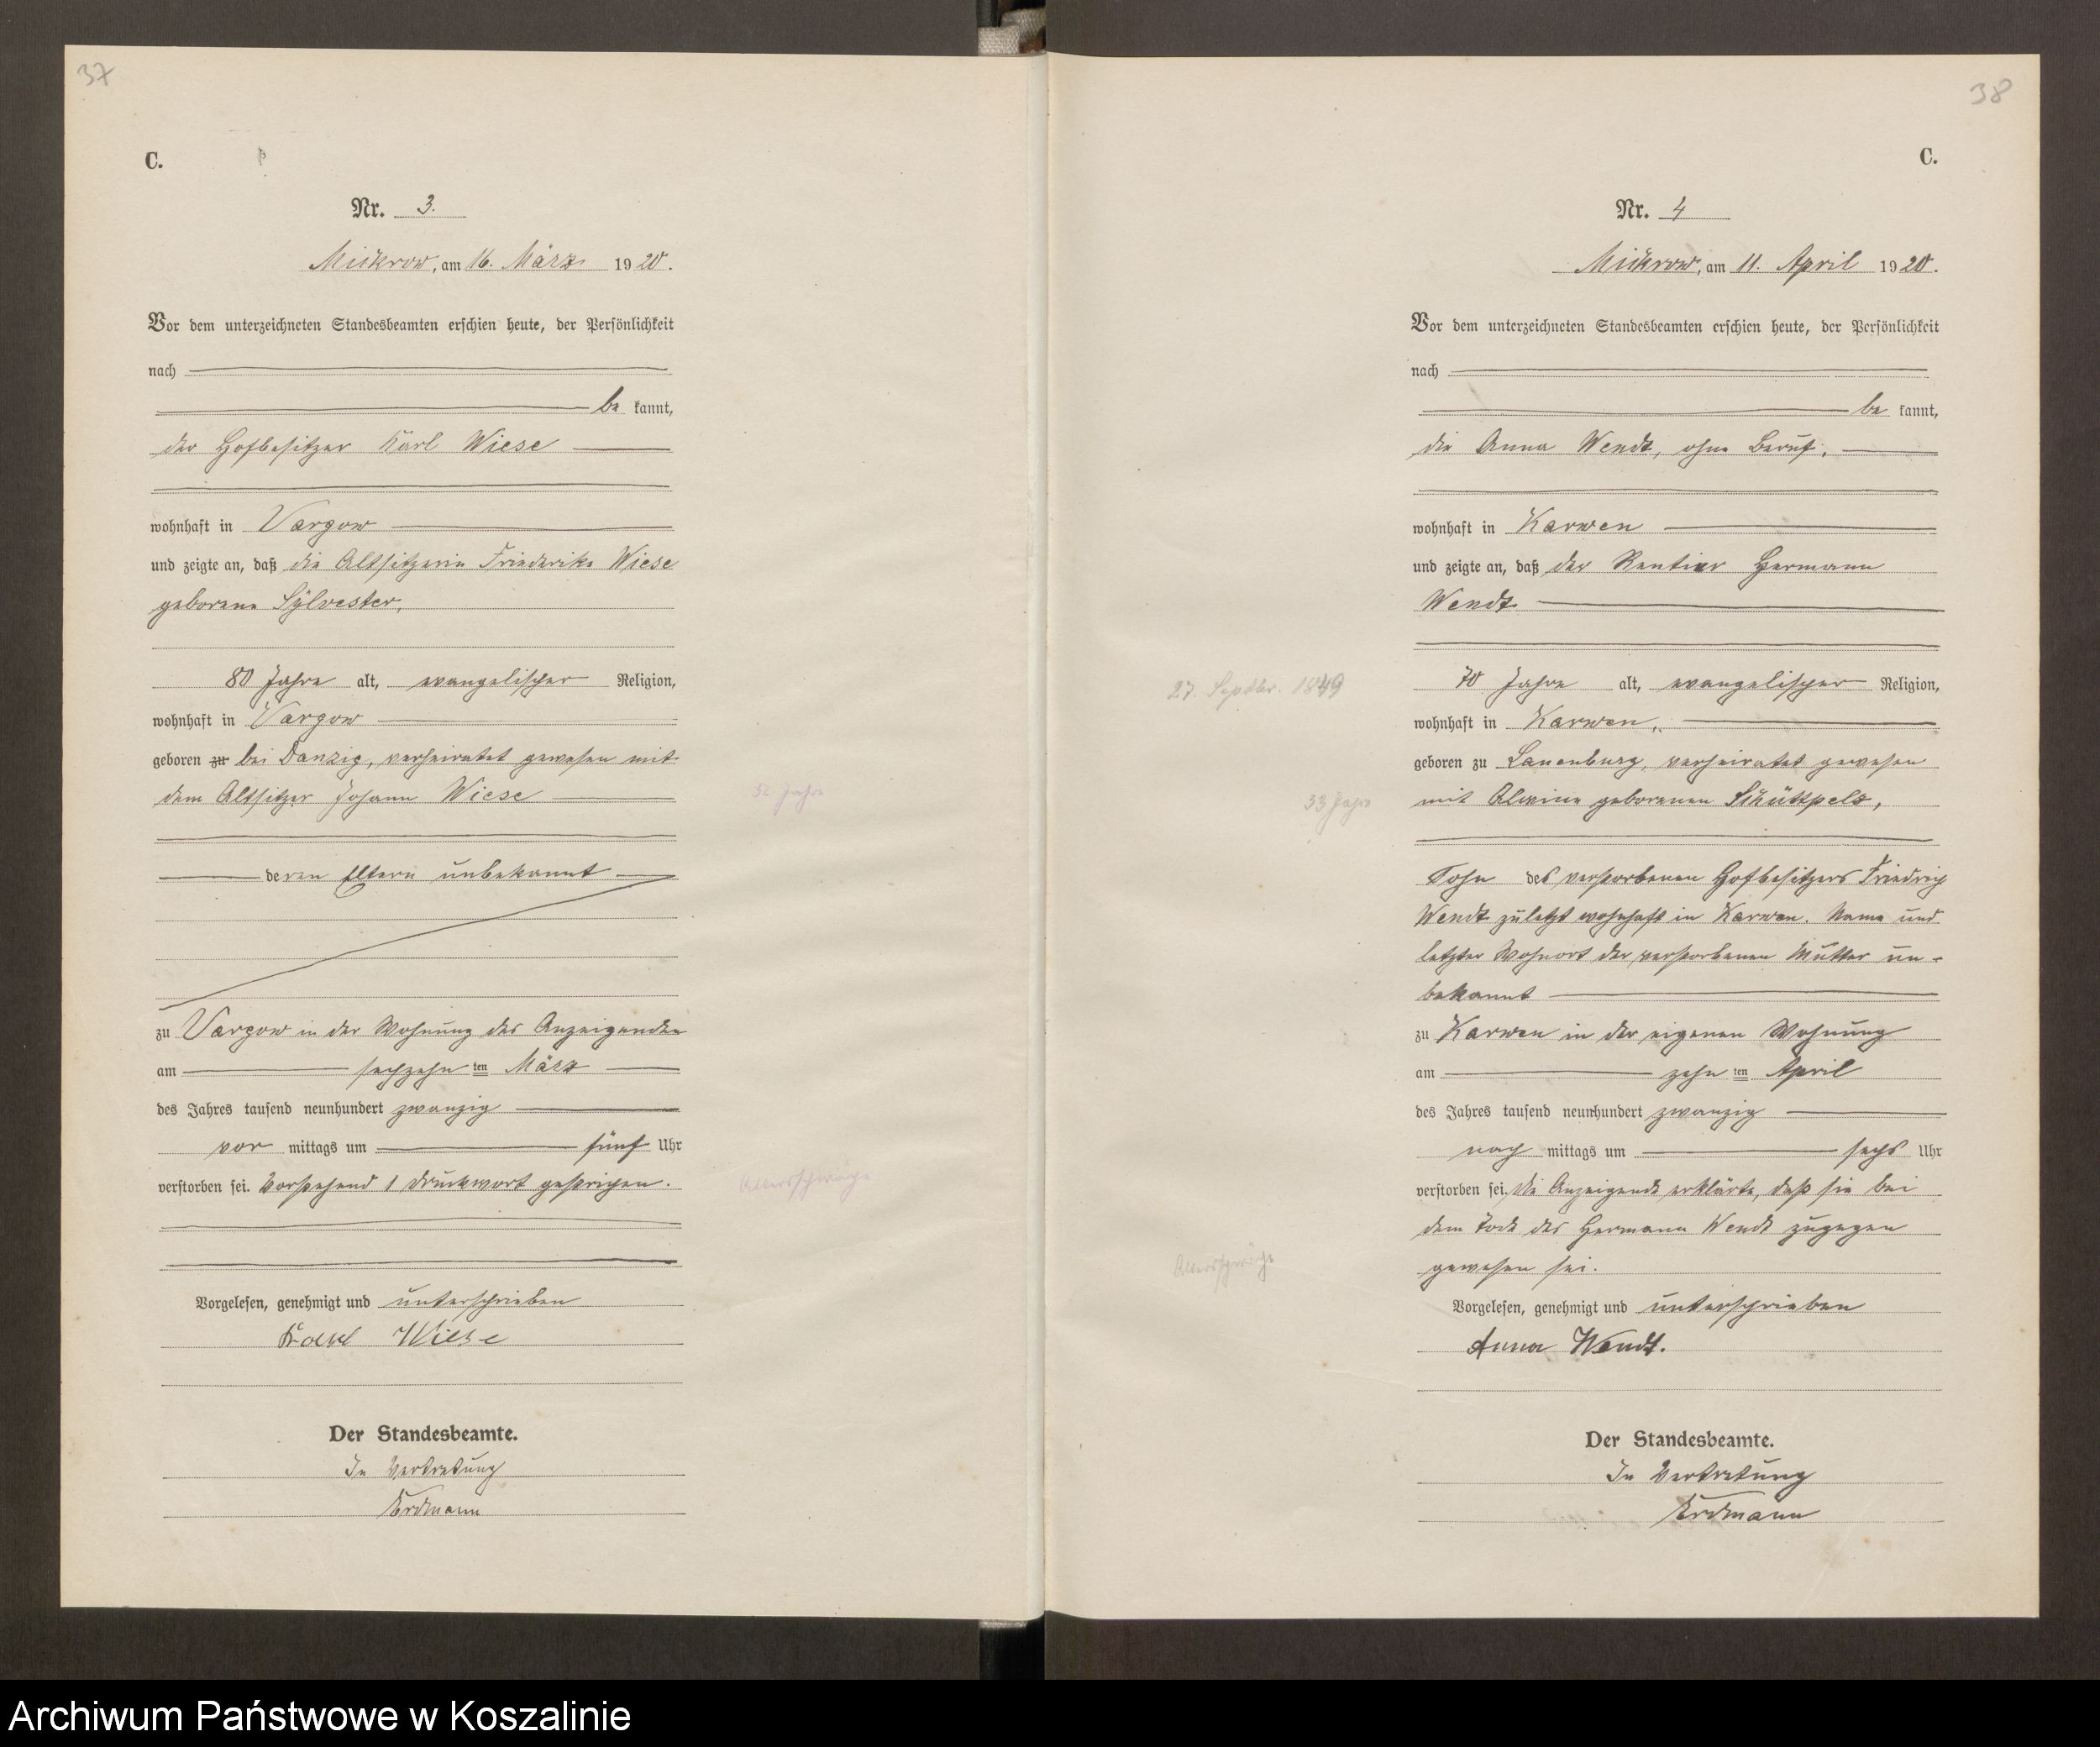 37
C.
Nr. 3.
Mickrow, am 16. März 1920.
Vor dem unterzeichneten Standesbeamten erschien heute, der Persönlichkeit
nach
be kannt,
der Hofbesitzer Karl Wiese
wohnhaft in Vargow
und zeigte an, daß die Altsitzerin Friederike Wiese
geborene Sylvester,
80 Jahre alt, evangelischer Religion,
wohnhaft in Vargow
geboren zu bei Danzig, verheiratet gewesen mit
dem Altsitzer Johann Wiese
Jahre
deren Eltern unbekannt
zu Vargow in der Wohnung des Anzeigenden
am sechzehn ten März
des Jahres tausend neunhundert zwanzig
vor mittags um fünf Uhr
verstorben sei. Vorstehend 1 Druckwort gestrichen.
Altersschwäche
Vorgelesen, genehmigt und unterschrieben
Karl Wiese
Der Standesbeamte.
In Vertretung
Erdmann
38
C.
Nr. 4
Mickrow, am 11. April 1920.
Vor dem unterzeichneten Standesbeamten erschien heute, der Persönlichkeit
nach
be kannt,
die Anna Wendt, ohne Beruf,
wohnhaft in Karwen
und zeigte an, daß der Rentier Hermann
Wendt
27. Septbr. 1849
70 Jahre alt, evangelischer Religion,
wohnhaft in Karwen,
geboren zu Lauenburg, verheiratet gewesen
33 Jahre
mit Alwine geborenen Schüttpelz,
Sohn des verstorbenen Hofbesitzers Friedrich
Wendt zuletzt wohnhaft in Karwen. Name und
letzter Wohnort der verstorbenen Mutter un-
bekannt
zu Karwen in der eigenen Wohnung
am zehn ten April
des Jahres tausend neunhundert zwanzig
nach mittags um sechs Uhr
verstorben sei. Die Anzeigende erklärte, daß sie bei
dem Tode des Hermann Wendt zugegen
gewesen sei.
Altersschwäche
Vorgelesen, genehmigt und unterschrieben
Anna Wendt.
Der Standesbeamte.
In Vertretung
Erdmann
Archiwum Państwowe w Koszalinie